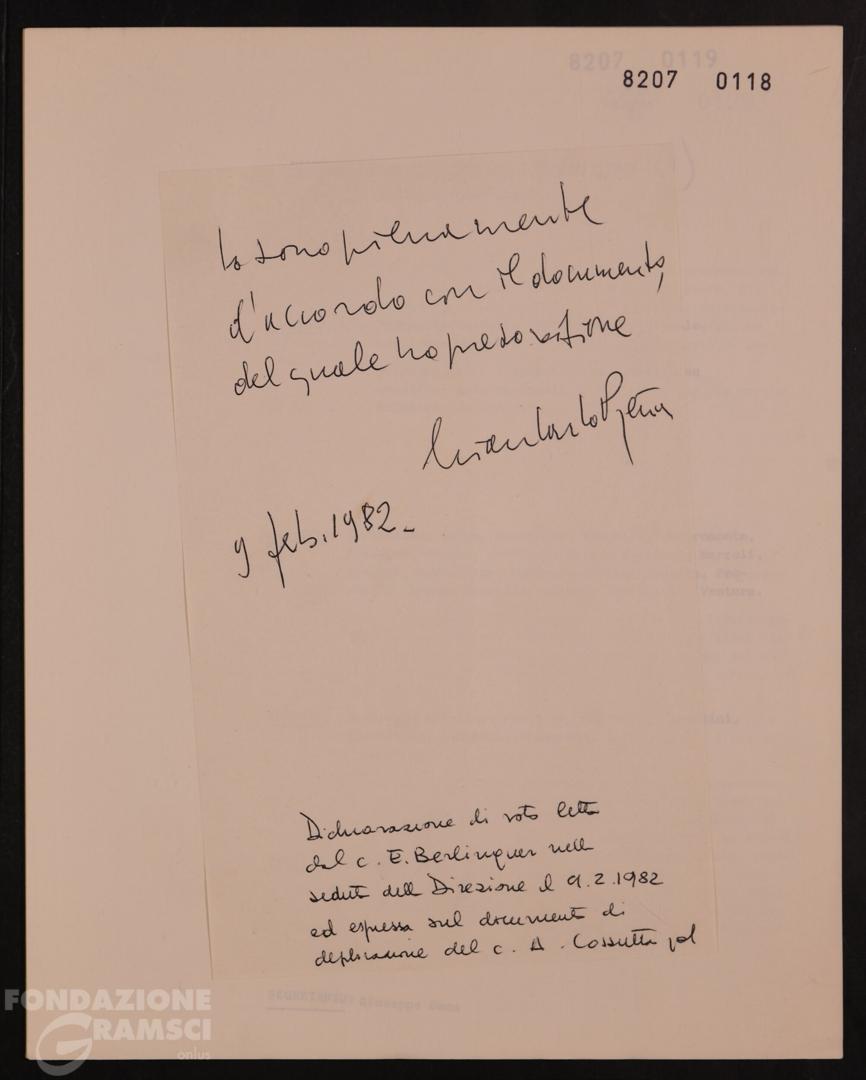 8207 0118
Io sono pienamente
d'accordo con il documento,
del quale ho preso visione
Giancarlo Pajetta
9 feb. 1982_
Dichiarazione di voto letta
dal c. E. Berlinguer nella
seduta della Direzione il 9.2.1982
ed espressa sul documento di
deplorazione del c. A. Cossutta
8207 0119
SEGRETARIO: Giuseppe
FONDAZIONE
GRAMSCI
onlus